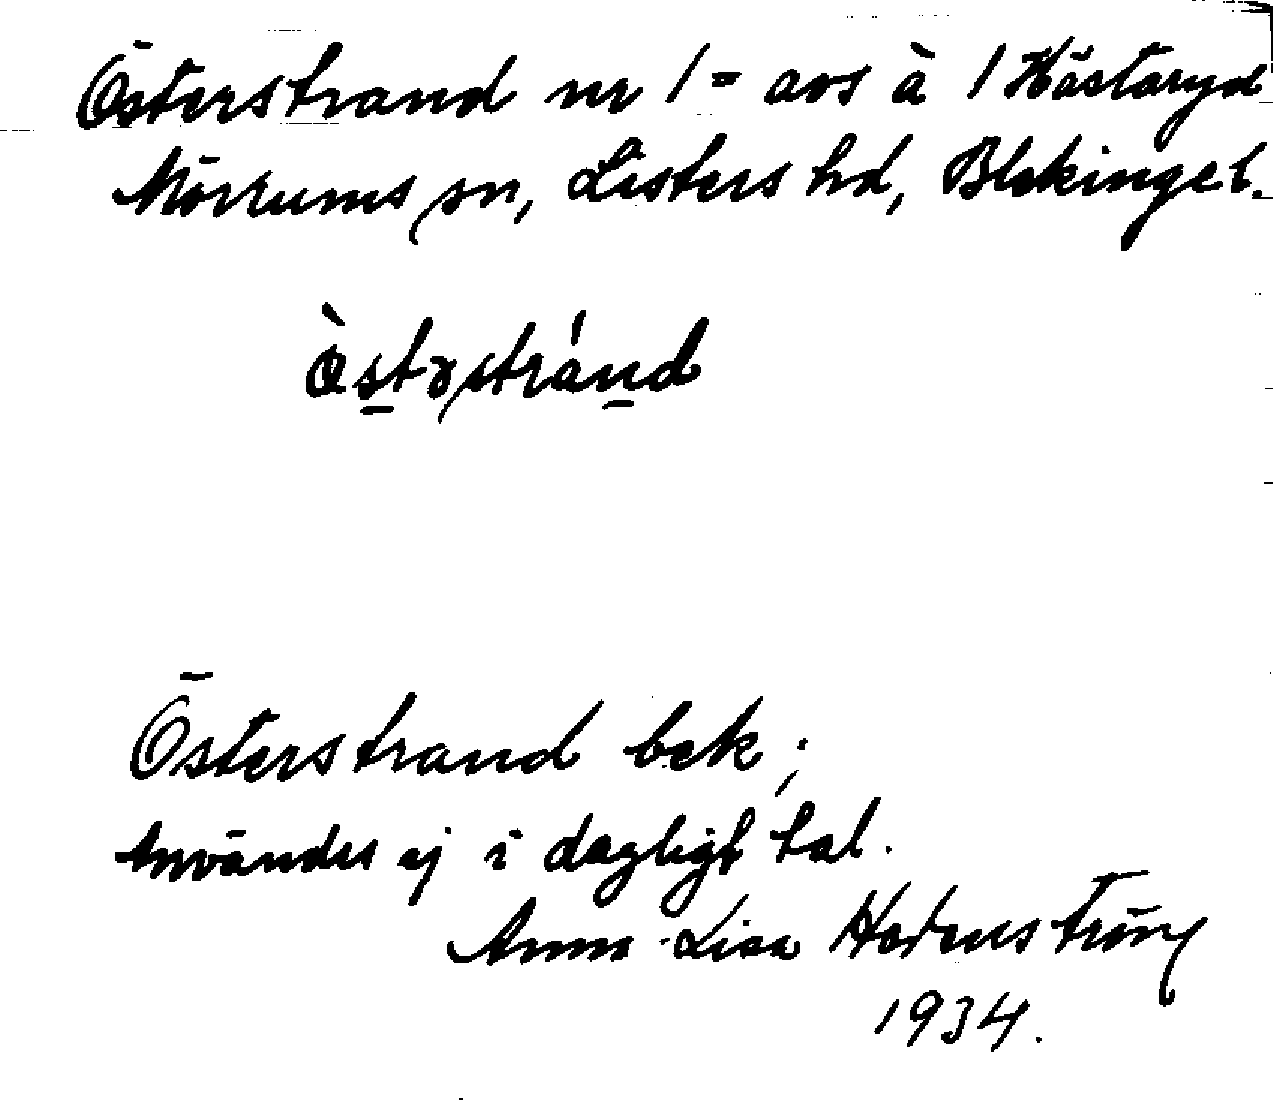 Österstrand nr 1 = avs å 1 Hästaryd
Mörrums sn, Listers hd, Blekinge l.
Òstərstránd
Österstrand bek;
Användes ej i dagligt tal.
Anna-Lisa
1934.